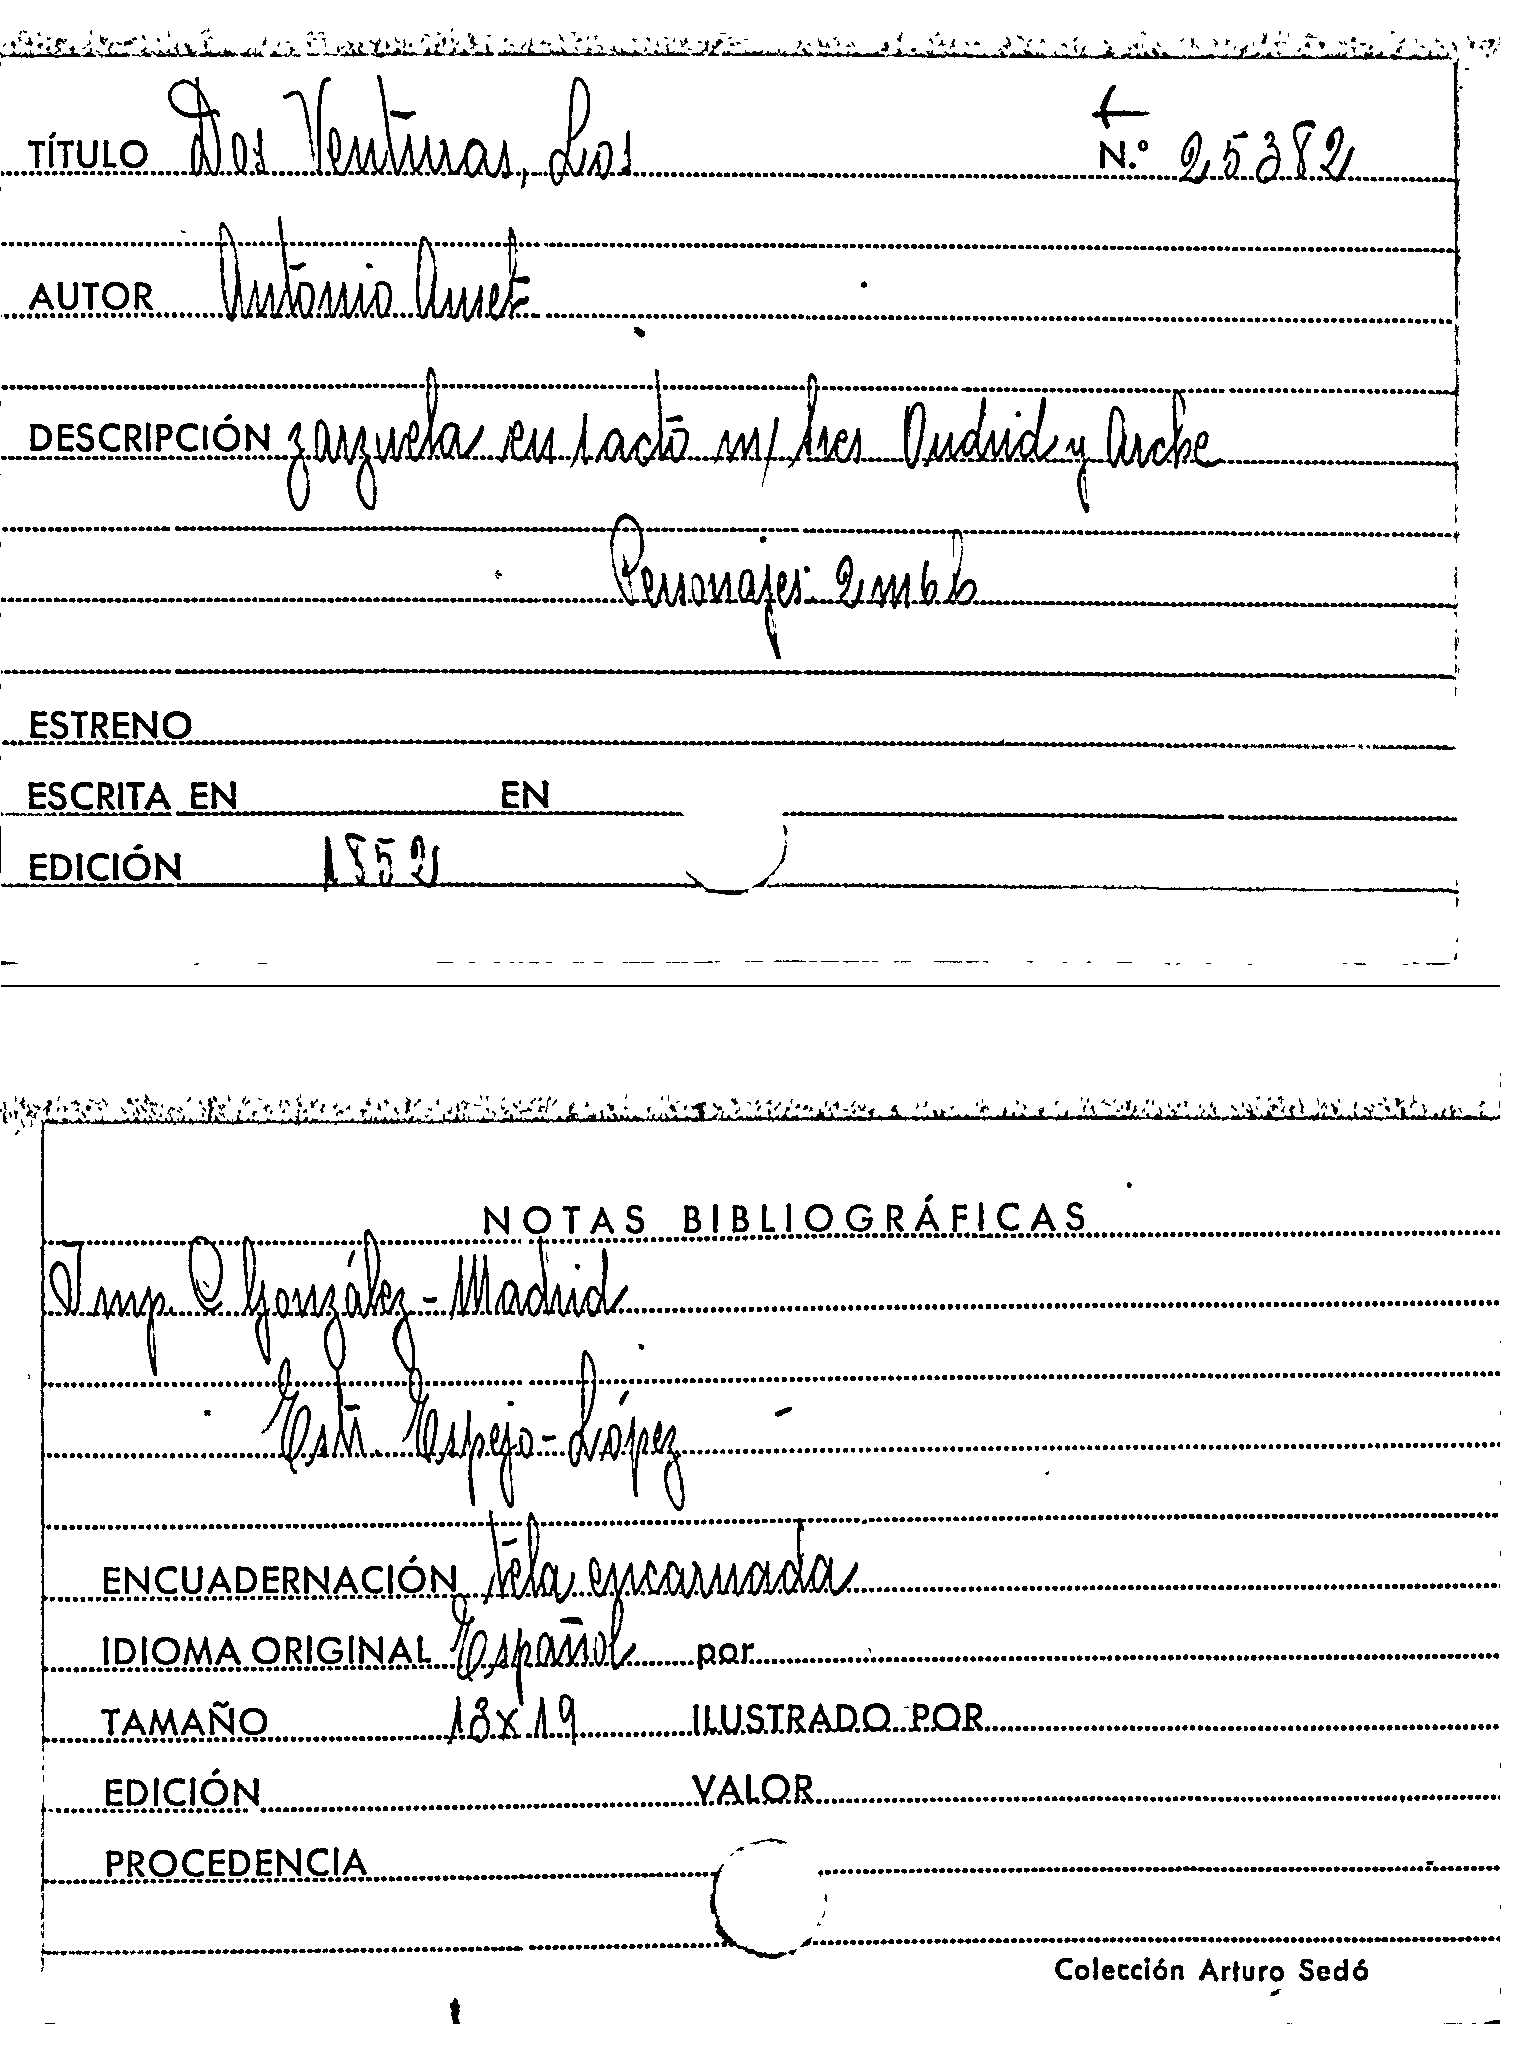 TÍTULO Dos Venturas, Los N.º 25382
AUTOR Antonio Auset
DESCRIPCIÓN zarzuela en 1 acto m/ sres Oudrid y Arche
Personajes: 2 m 6 h
ESTRENO
ESCRITA EN EN
EDICIÓN 1852
NOTAS BIBLIOGRÁFICAS
Imp. C González - Madrid
Edit. Espejo - López
ENCUADERNACIÓN tela encarnada
IDIOMA ORIGINAL Español por
TAMAÑO 13x19 ILUSTRADO POR
EDICIÓN VALOR
PROCEDENCIA
Colección Arturo Sedó